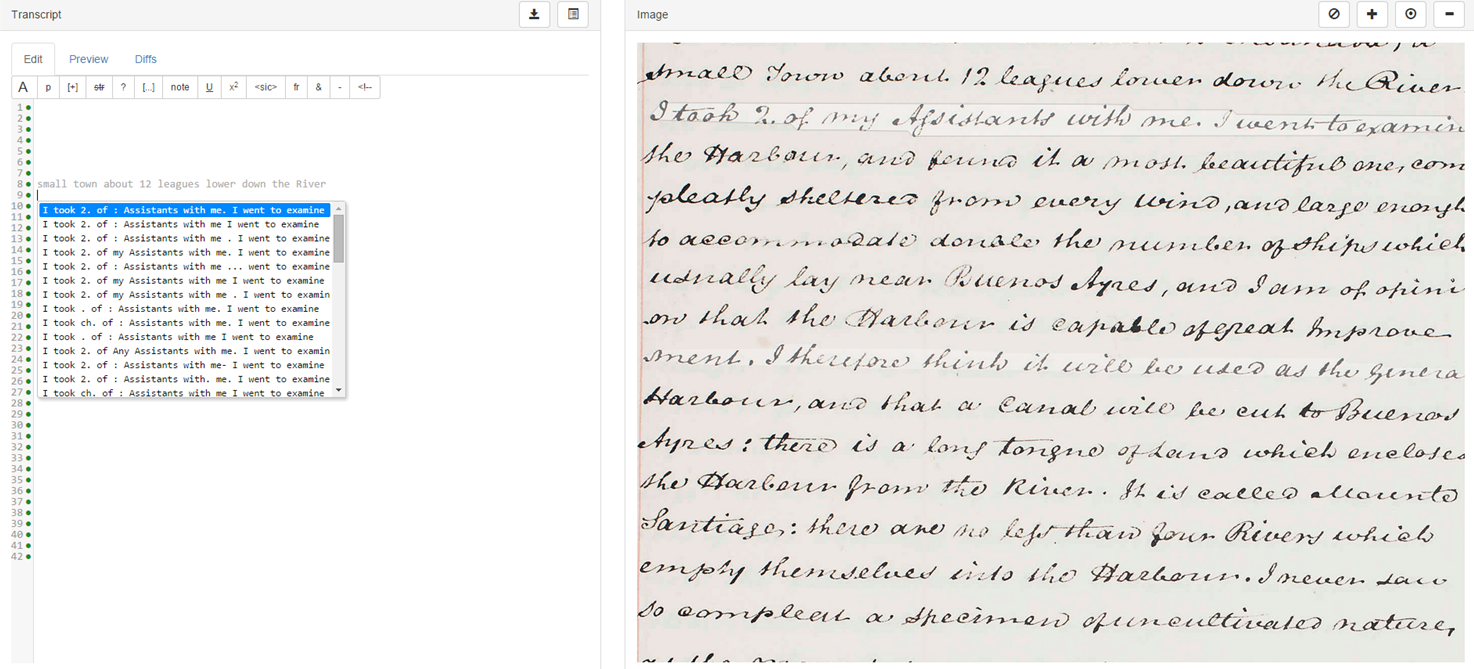 Transcript
Edit Preview Diffs
A p [+] str ? [...] note U x² <sic> fr & - <!--
1
2
3
4
5
6
7
8 small town about 12 leagues lower down the River
9
10
11
12
13
14
15
16
17
18
19
20
21
22
23
24
25
26
27
28
29
30
31
32
33
34
35
36
37
38
39
40
41
42
I took 2. of : Assistants with me. I went to examine
I took 2. of : Assistants with me I went to examine
I took 2. of : Assistants with me . I went to examine
I took 2. of my Assistants with me. I went to examine
I took 2. of : Assistants with me ... went to examine
I took 2. of my Assistants with me I went to examine
I took 2. of my Assistants with me . I went to examin
I took . of : Assistants with me. I went to examine
I took ch. of : Assistants with me. I went to examine
I took . of : Assistants with me I went to examine
I took 2. of Any Assistants with me. I went to examin
I took 2. of : Assistants with me- I went to examine
I took 2. of : Assistants with. me. I went to examine
I took ch. of : Assistants with me I went to examine
Image
small Town about 12 leagues lower down the River
I took 2. of my Assistants with me. I went to examin
the Harbour, and found it a most beautiful one, com
pleatly sheltered from every wind, and large enough
to accommodate double the number of ships which
usually lay near Buenos Ayres, and I am of opini
on that the Harbour is capable of great Improve
ment. I therefore think it will be used as the genera
Harbour, and that a Canal will be cut to Buenos
Ayres: there is a long tongue of Land which encloses
the Harbour from the River. It is called Mounte
Santiago: there are no less than four Rivers which
empty themselves into the Harbour. I never saw
so compleat a specimen of uncultivated nature,